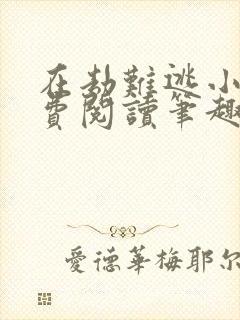 在劫難逃小
費閱讀筆趣
愛德華梅耶尔